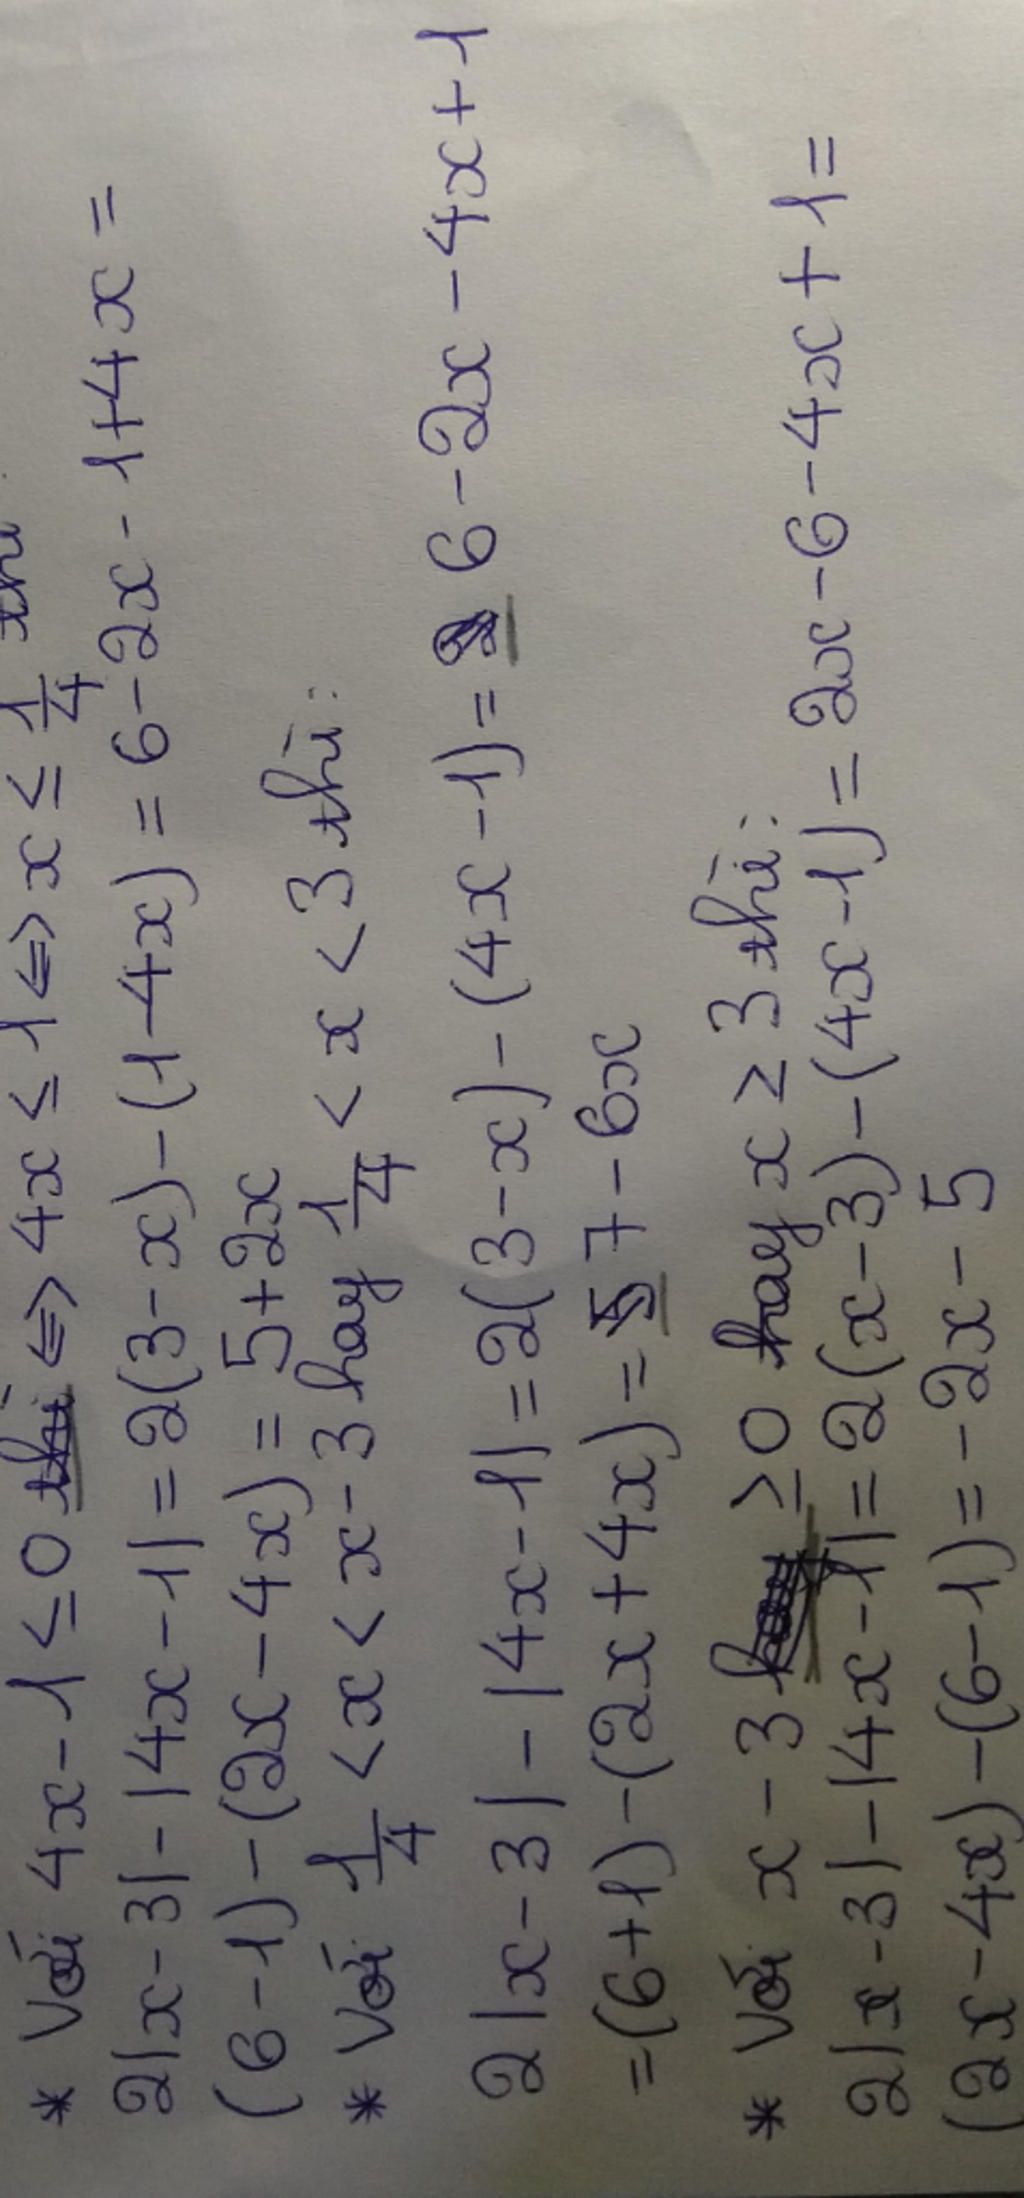 * Với 4x-1≤0 ⇔ 4x ≤ 1 ⇔ x ≤ 1/4 thì
2|x-3|-|4x-1|=2(3-x)-(1-4x)=6-2x-1+4x=
(6-1)-(2x-4x)=5+2x
* Với 1/4 <x<x-3 hay 1/4 < x < 3 thì:
2|x-3|-|4x-1|=2(3-x)-(4x-1)= 6-2x-4x+1
=(6+1)-(2x+4x)= 7-6x
* Với x-3 ≥0 hay x ≥ 3 thì:
2|x-3|-|4x-1|=2(x-3)-(4x-1)=2x-6-4x+1=
(2x-4x)-(6-1)=-2x-5